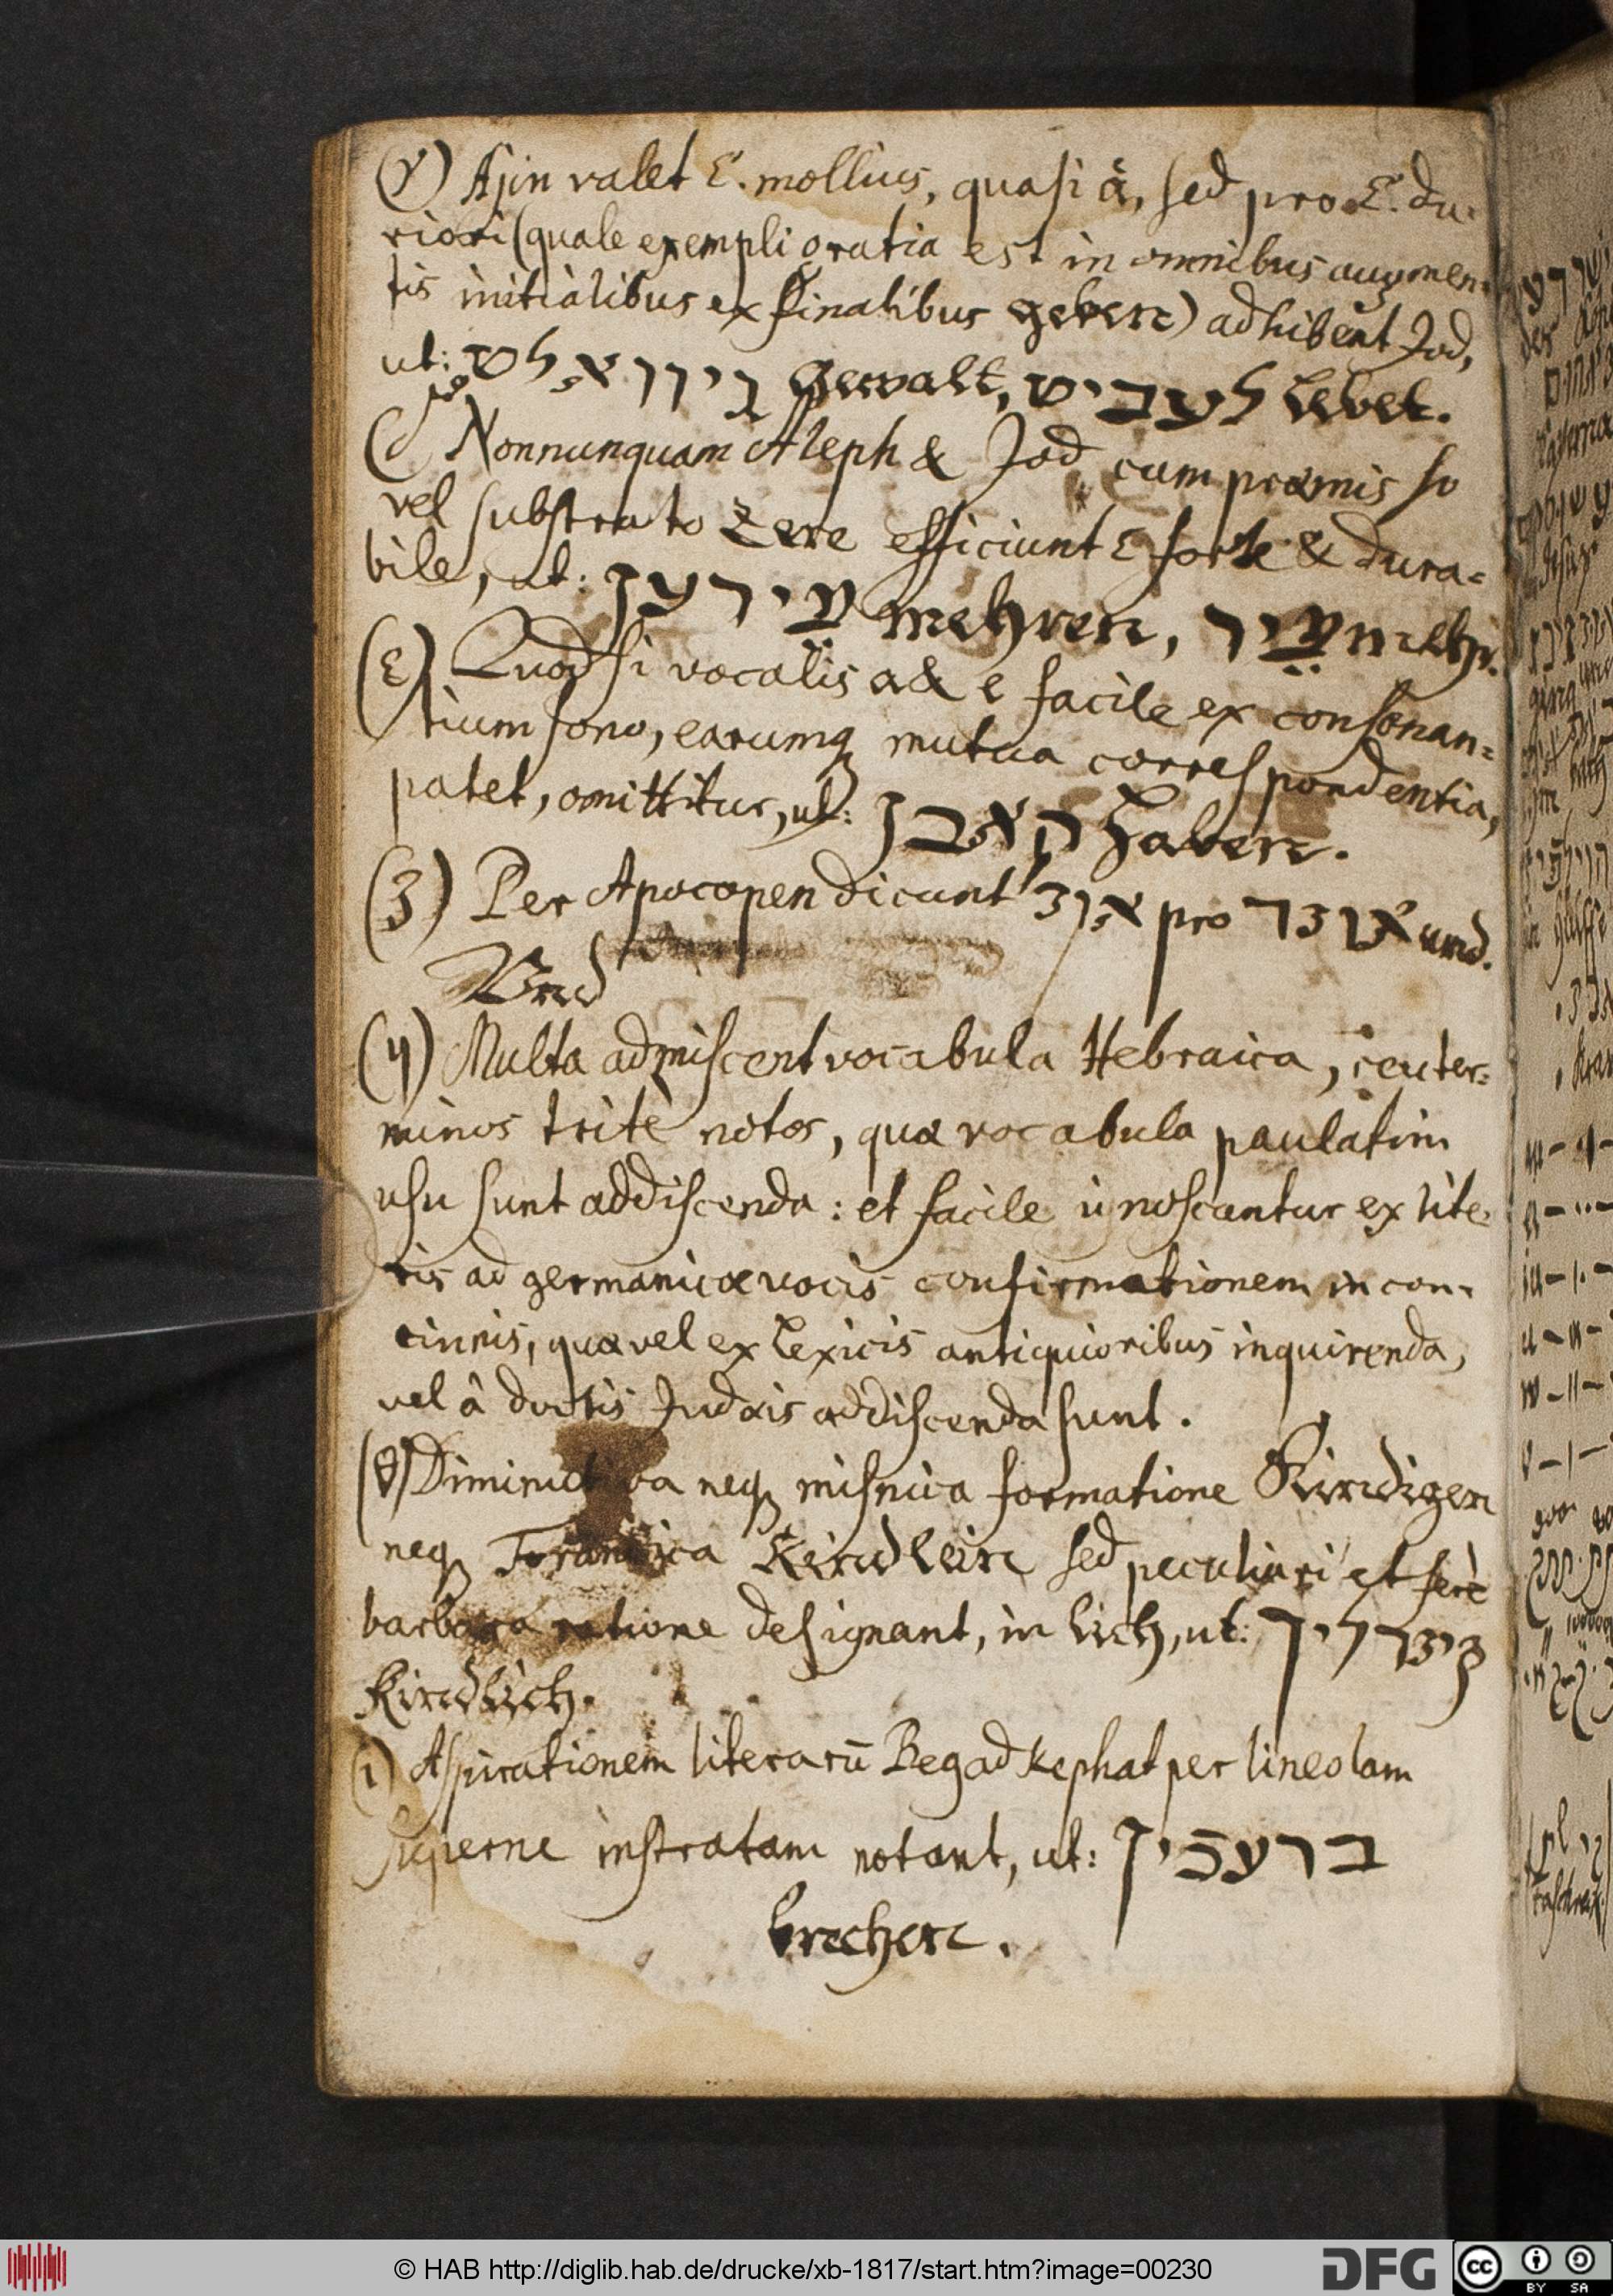 (γ) Ajin valet E. mollius, quasi ä, sed pro E. du-
riori (quale exempli gratia est in omnibus augmen-
tis initialibus ex finalibus geben) adhibent Jod,
ut: גיוואלט Gewalt, לעביט Lebet.
(δ) Nonnunquam Aleph & Jod cum præmisso
vel substrato Zere efficiunt E forte & dura-
bile, ut: מעירען mehren, מעיר mehr.
(ε) Quod si vocalis a & e facile ex consonan-
tium sono, earumq mutua correspondentia,
patet, omittitur, ut: האבן haben.
(3) Per Apocopen dicunt אונ pro אונד und.
Vnd
(η) Multa admiscent vocabula Hebraica, ceu ter-
minos tritè notos, quæ vocabula paulatim
usu sunt addiscenda: et facile ignoscantur ex lite-
ris ad germanicæ vocis confirmationem incon-
cinnis, quæ vel ex Lexicis antiquioribus inquirenda,
vel â doctis Judæis addiscenda sunt.
(θ) Diminutiva neq misnica formatione Kindigen
neq Kindlein sed peculiari et ferè
barbara ratione designant, in lich, ut: קינדליך
Kindlich.
(ι) Aspirationem literarū Begadkephat per lineolam
superne instratam notant, ut: ברעכֿין
brechen.
© HAB http://diglib.hab.de/drucke/xb-1817/start.htm?image=00230
DFG
CC BY SA